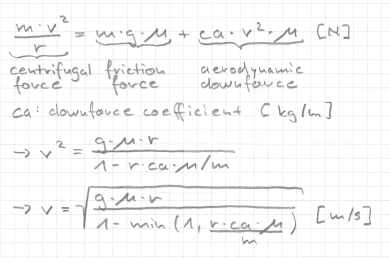 m·v²/r = m·g·μ + ca·v²·μ [N]
centrifugal friction aerodynamic
force force downforce
ca: downforce coefficient [kg/m]
→ v² = g·μ·r / 1-r·ca·μ/m
→ v = √ g·μ·r / 1-min(1, r·ca·μ / m) [m/s]